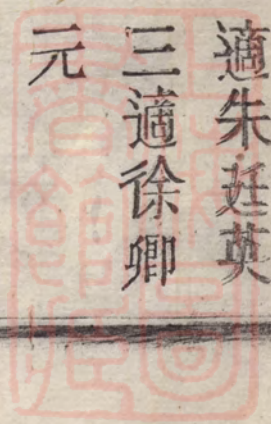 適朱廷英
三適徐卿
元